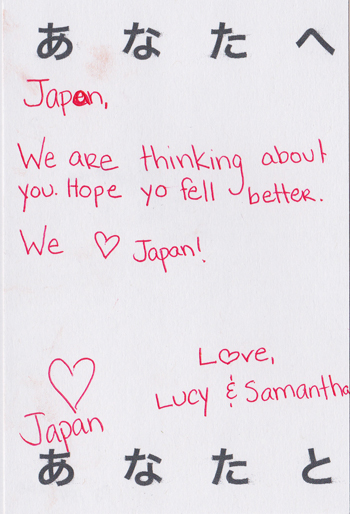 あなたへ
Japan,
We are thinking about
you. Hope yo fell better.
We ♡ Japan!
Love,
Lucy & Samantha
Japan
あなたと